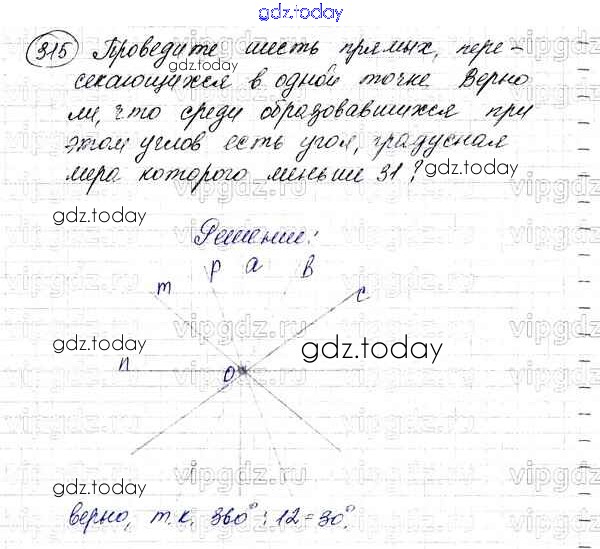 gdz.today
315 Проведите шесть прямых, пере-
секающихся в одной точке. Верно
ли, что среди образовавшихся при
этом углов есть угол, градусная
мера которого меньше 31?
gdz.today
gdz.today
Решение:
m p a b c
gdz.today
gdz.today
n O
vipgdz.ru
gdz.today
верно, т.к. 360° : 12 = 30°.